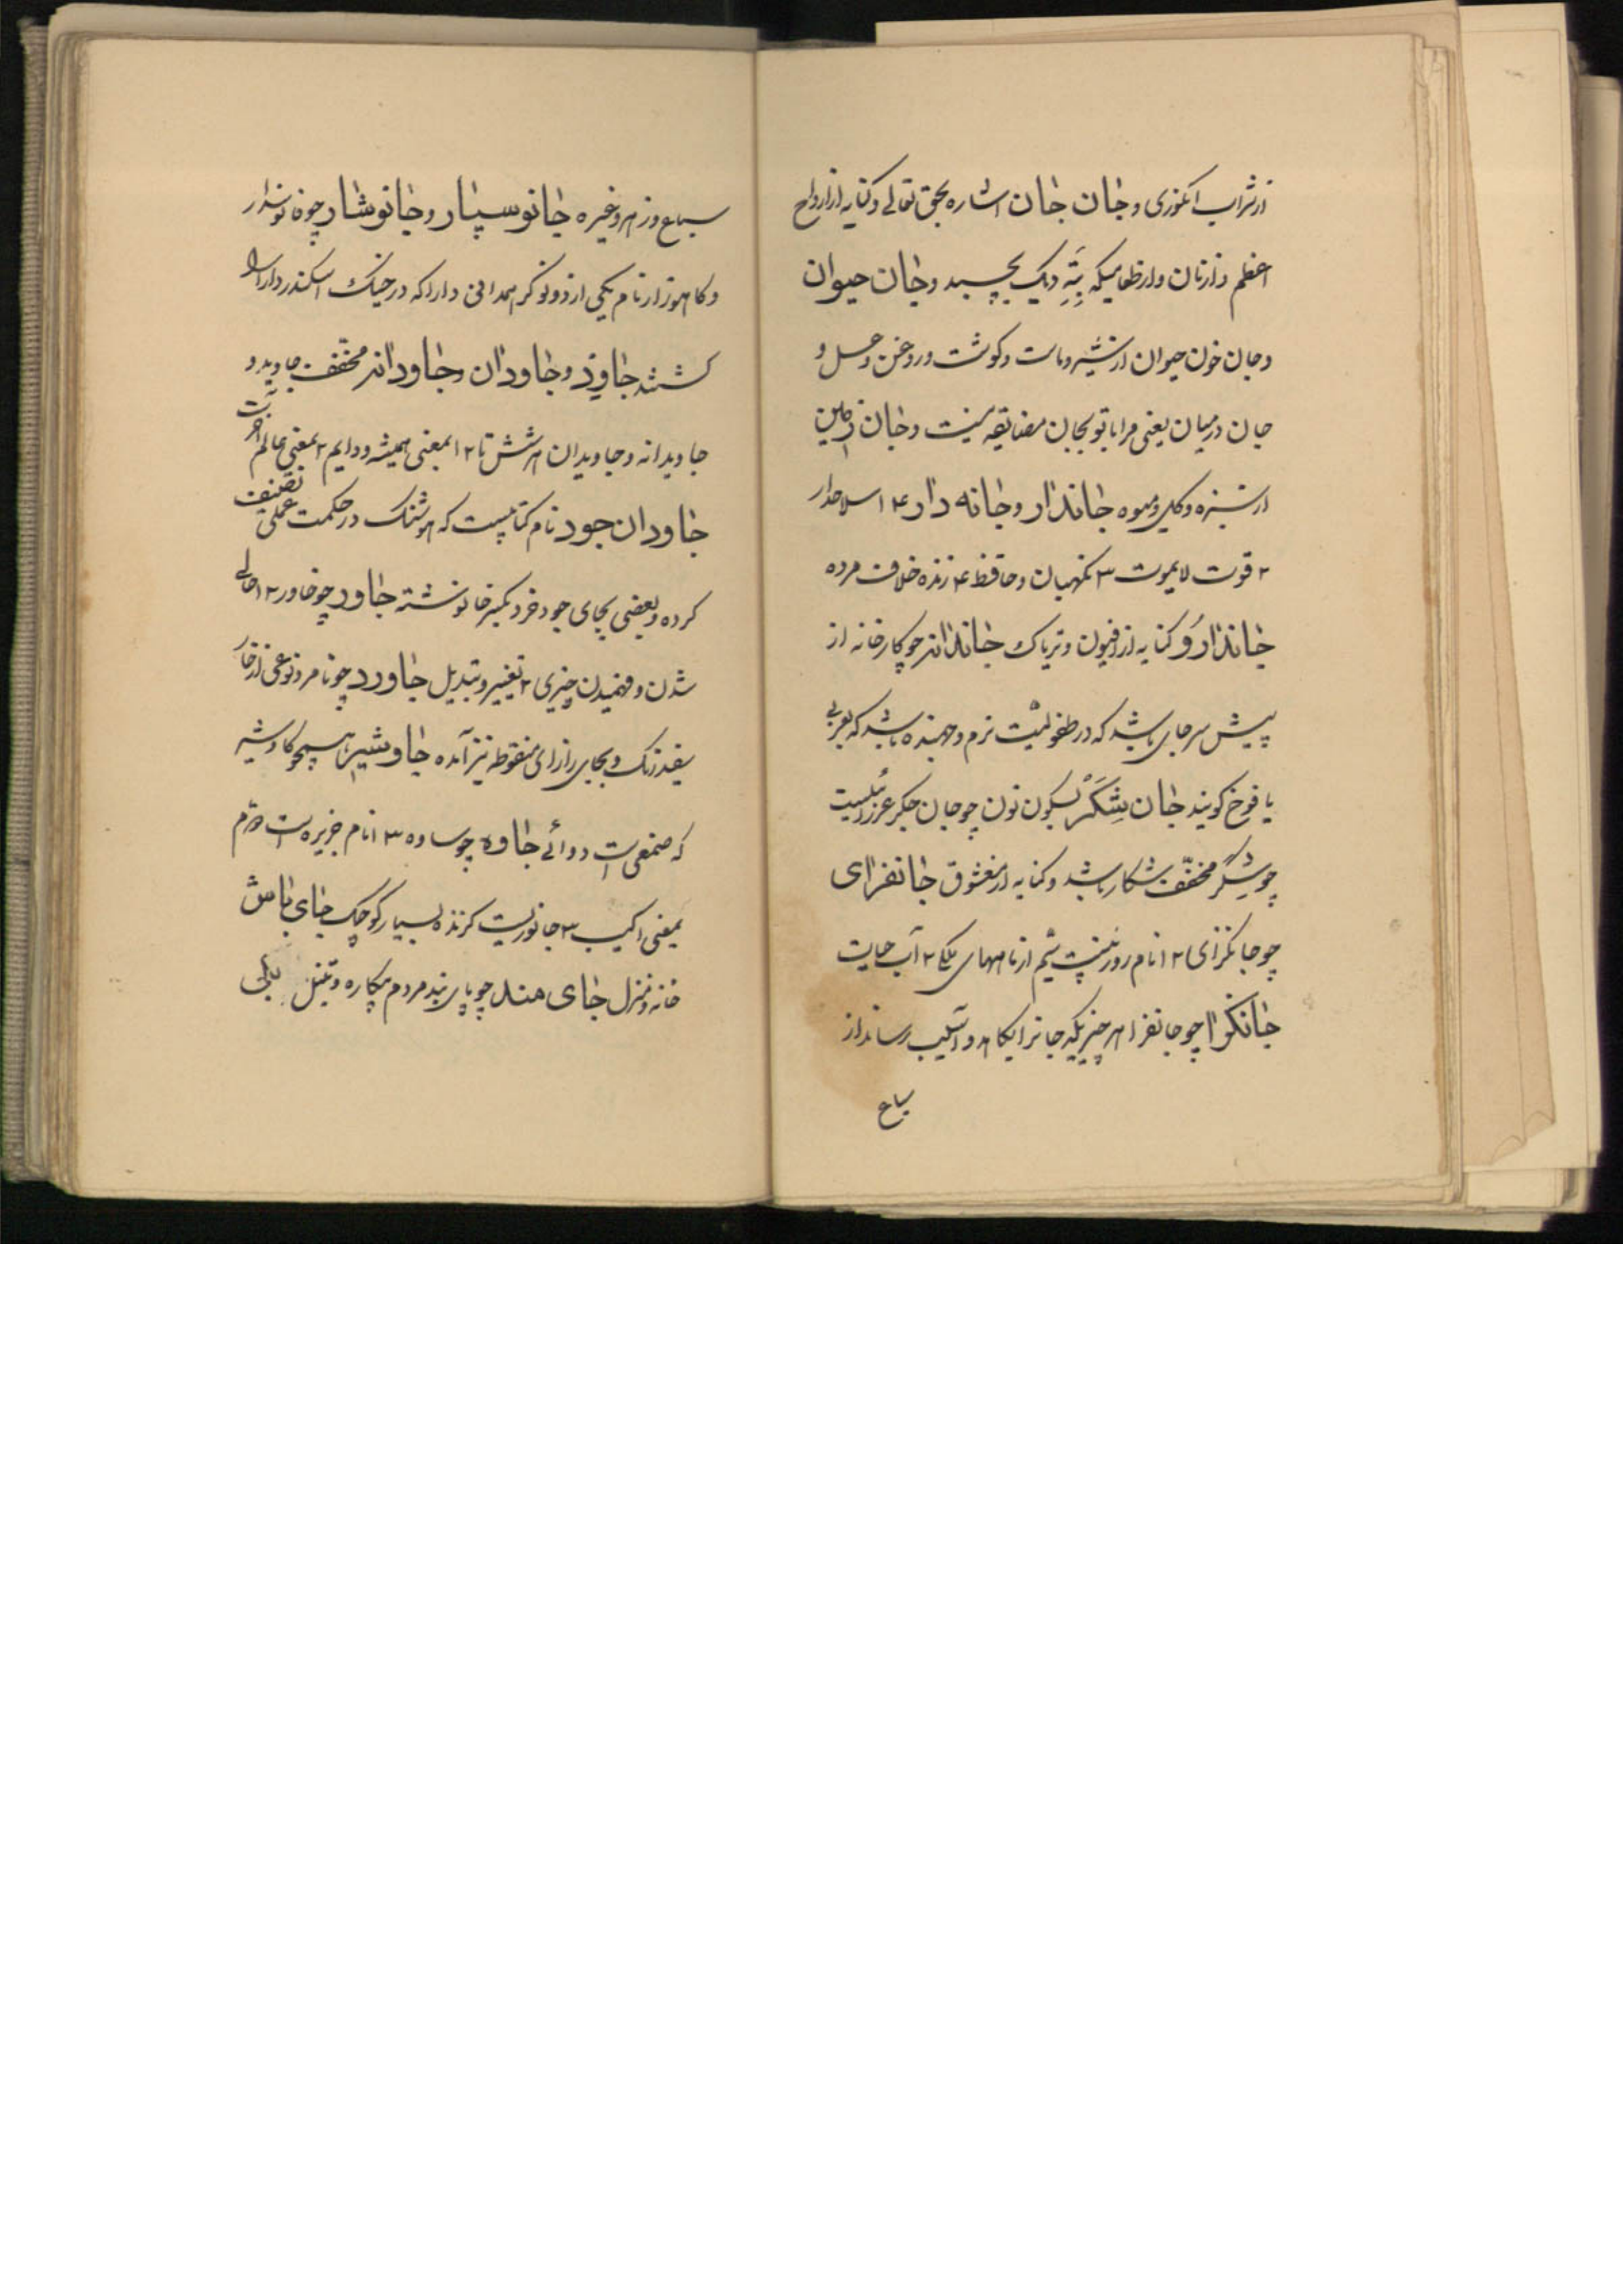 از شراب انگوری و جان جان اشاره بحق تعالی و کنایه از ارواح
اعظم و از نان و از طعامیکه بته دیک بچسبد و جان حیوان
و جان خون حیوان از شیر و ماست و گوشت و روغن و عسل و
جان در میان یعنی مرا با تو بجان مضایقه نیست و جان زمین
از سبزه و گل و میوه جاندار و جانه دار ۴ ۱ سلاحدار
۲ قوت لایموت ۳ نگهبان و حافظ ۴ زنده خلاف مرده
جاندارو کنایه از افیون و تریاک جاندانه چو کارخانه از
پیش سر جای باشد که در طفولیت نرم و جهنده باشد که بعربی
یا فوخ گویند جان شکر بسکون نون چو جان جگر عزرائیلست
چو شکر مخفف شکار باشد و کنایه از معشوق جانفزای
چو جانگزای ۲ ۱ نام روز بیست سیم از ماههای ملکی ۲ آب حیات
جانگزا چو جانفزا هر چیزیکه جانرا بکاهد و آسیب رساند از
سباع
سباع و زهر و غیره جانوسپار و جانوشار چو فانوسدار
و کاموزار نام یکی از دو نوکر همدانی دارا که در جنگ اسکندر دارا را
کشتند جاوید و جاودان و جاودانه مخفف جاوید و
جاویدانه و جاویدان هر شش تا ۲ ۱ بمعنی همیشه و دایم ۲ بمعنی عالم آخرت
جاودان جود نام کتابیست که هوشنگ در حکمت عملی تصنیف
کرده و بعضی بجای جود خرد بکسر خا نوشته جاور چو خاور ۲ ۱ حالی
شدن و فهمیدن چیزی ۲ تغییر و تبدیل جاورد چو نامرد نوعی از خار
سفید رنگ و بجای را زای منقوطه نیز آمده جاوشیر همچو گاوشیر
که صمغی است دوائی جاوه چو ساوه ۳ ۱ نام جزیره است دوم
بمعنی اکیب ۳ جانوریست گزنده بسیار کوچک جای باش
خانه و منزل جای مند چو پای بند مردم بیکاره و تنبل